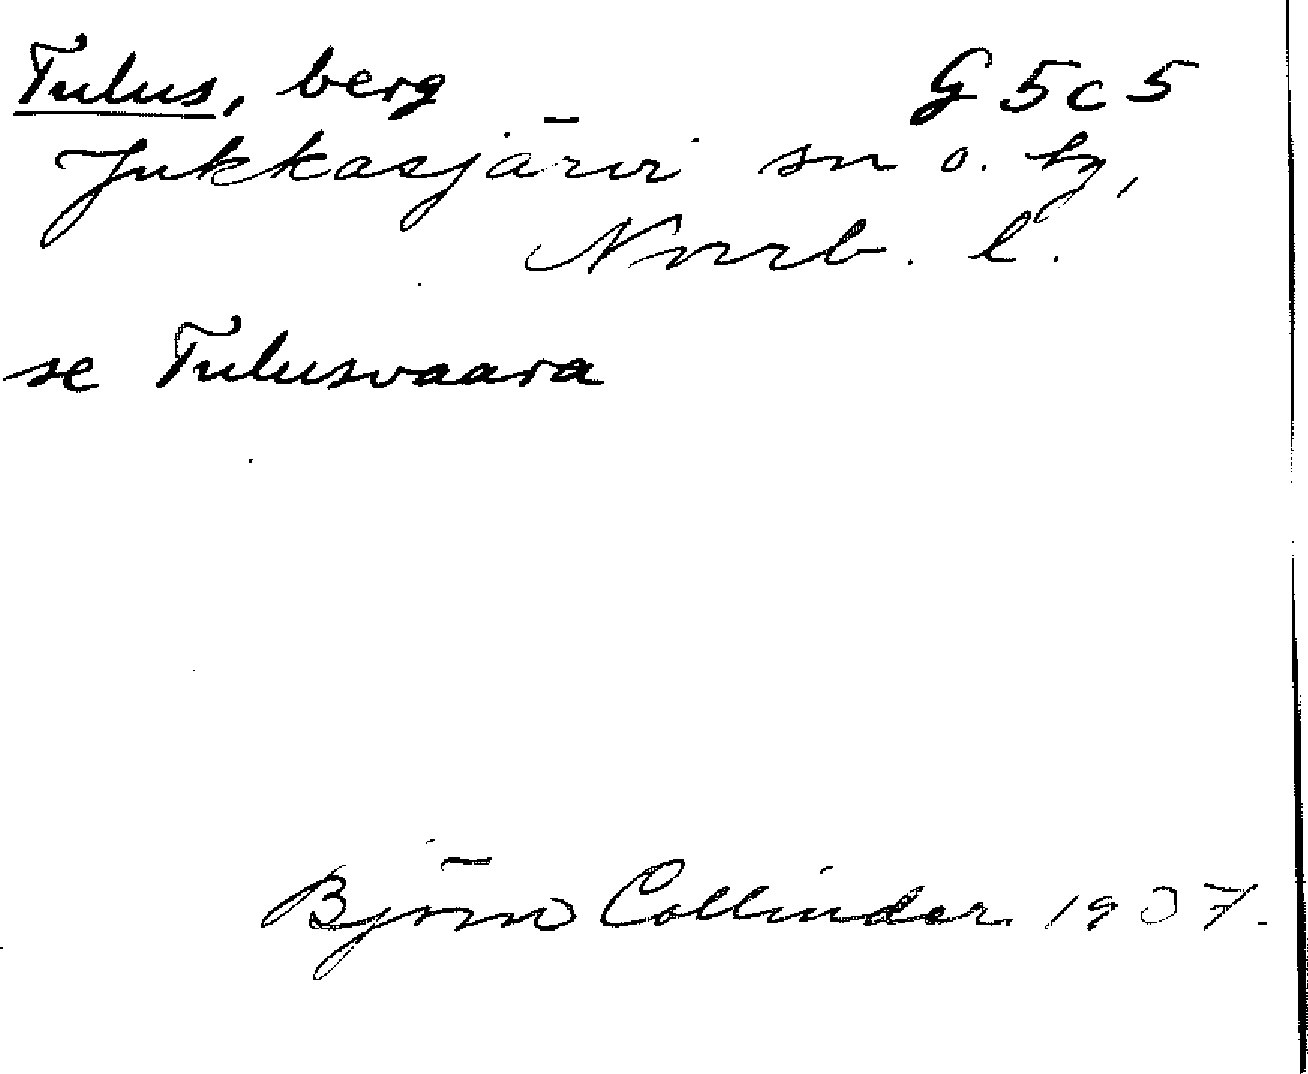 Tulus, berg G 5c5
Jukkasjärvi sn o. tg,
Norrb. l.
se Tulusvaara
Björn Collinder 1907.